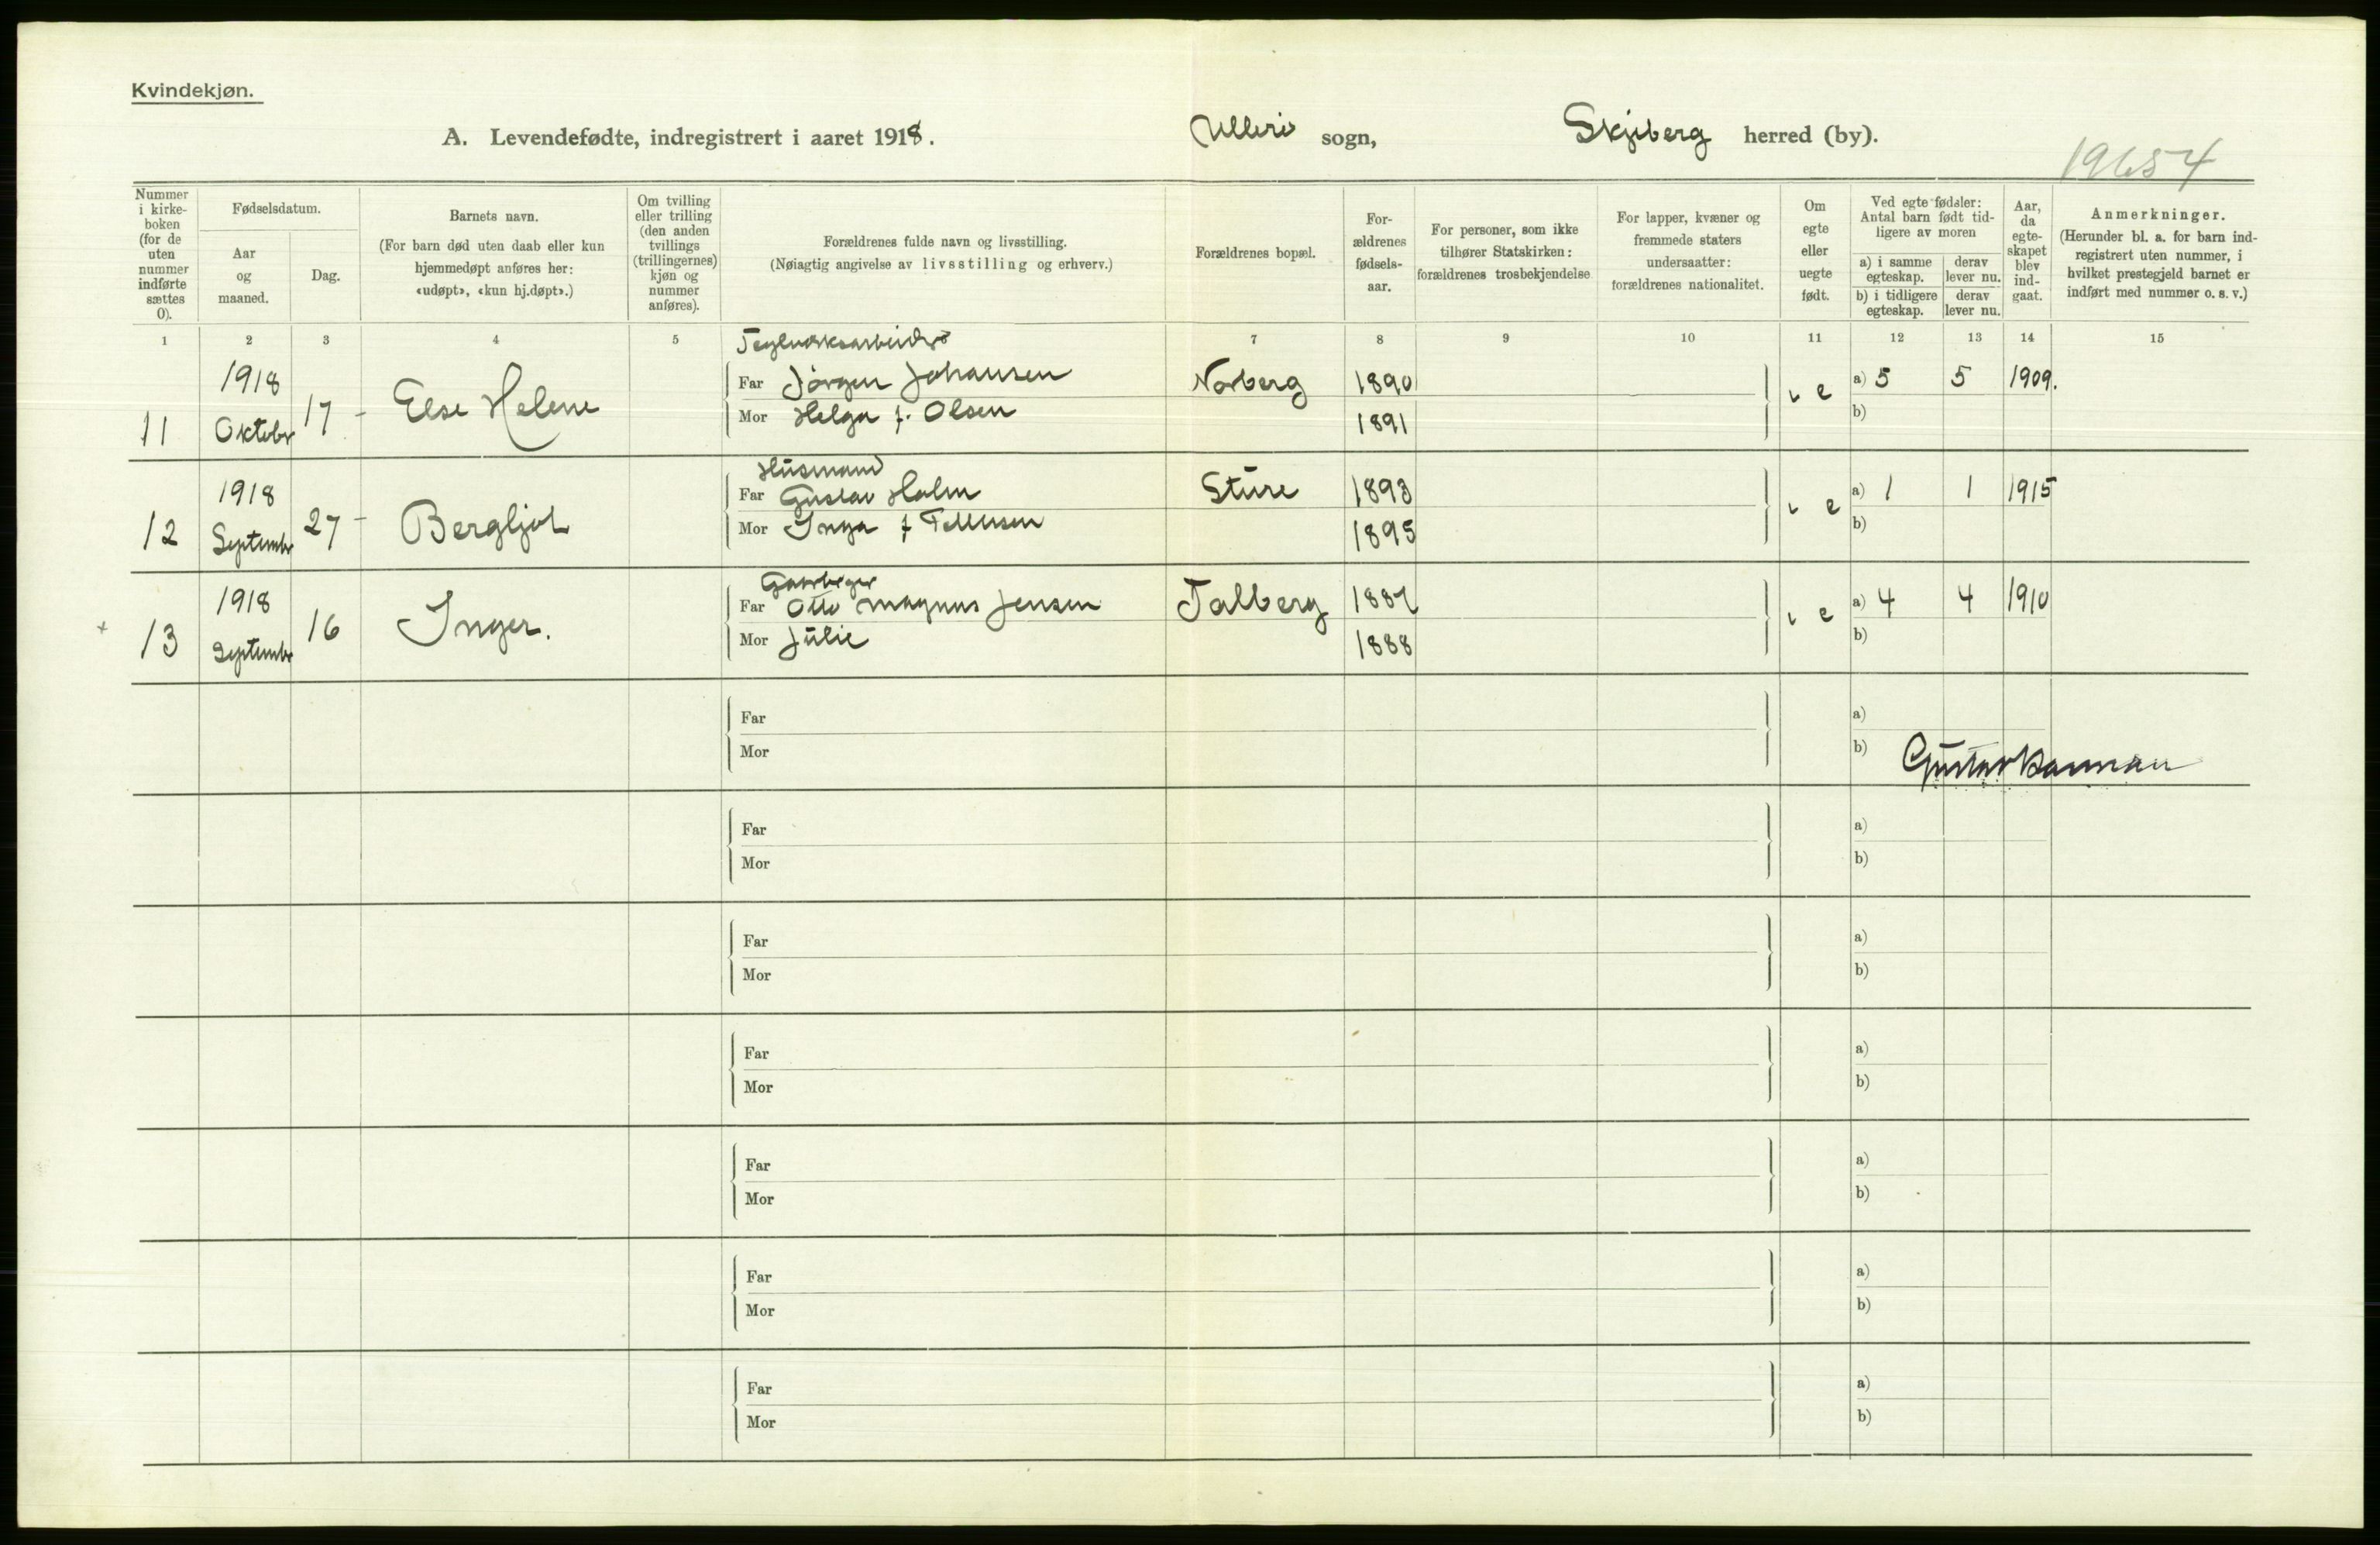 Kvindekjøn.
A. Levendefødte, indregistrert i aaret 1918. Ullerø sogn, Skjeberg herred (by).
19654
Nummer i kirke-boken (for de uten nummer indførte sættes 0).
Fødselsdatum.
Aar og maaned.
Dag.
Barnets navn.
(For barn død uten daab eller kun hjemmedøpt anføres her: «udøpt», «kun hj.døpt».)
Om tvilling eller trilling (den anden tvillings (trillingernes) kjøn og nummer anføres).
Forældrenes fulde navn og livsstilling.
(Nøiagtig angivelse av livsstilling og erhverv.)
Forældrenes bopæl.
For-ældrenes fødsels-aar.
For personer, som ikke tilhører Statskirken: forældrenes trosbekjendelse.
For lapper, kvæner og fremmede staters undersaatter: forældrenes nationalitet.
Om egte eller uegte født.
Ved egte fødsler: Antal barn født tid-ligere av moren
a) i samme egteskap.
derav lever nu.
b) i tidligere egteskap.
derav lever nu.
Aar, da egte-skapet blev ind-gaat.
Anmerkninger.
(Herunder bl. a. for barn ind-registrert uten nummer, i hvilket prestegjeld barnet er indført med nummer o. s. v.)
1 2 3 4 5 7 8 9 10 11 12 13 14 15
Teglverksarbeider
11 1918 Oktober 17 - Else Helene Far Jörgen Johansen Norberg 1890 e a) 5 5 1909.
Mor Helga f. Olsen 1891 b)
Husmand
12 1918 September 27 - Bergljot Far Gustav Holm Sture 1893 e a) 1 1 1915
Mor Inga f 1895 b)
13 1918 September 16 Inger. Far Otto Magnus Jensen Talberg 1887 e a) 4 4 1910
Mor Julie 1888 b)
Far a)
Mor b) Gustav
Far a)
Mor b)
Far a)
Mor b)
Far a)
Mor b)
Far a)
Mor b)
Far a)
Mor b)
Far a)
Mor b)